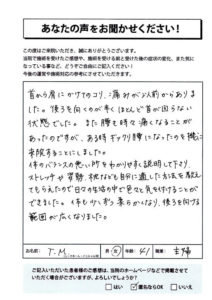 あなたの声をお聞かせください！
この度はご来院いただき、誠にありがとうございます。
当院で施術を受けたご感想や、施術を受ける前と受けた後の症状の変化、また気に
なっている事など、どうぞご自由にご記入ください！
今後の運営や施術対応の参考にさせていただきます。
首から肩にかけてのコリ、痛みが以前からありま
した。後ろを向くのが辛くほとんど首が回らない
状態でした。また腰も時々痛くなることが
あったのですが、ある時ギックリ腰になったのを機に
来院することにしました。
体のバランスの悪い所をわかりやすく説明して下さり
ストレッチや姿勢、枕なども自分に適した方法を教え
てもらえたので日々の生活の中で色々と気を付けることが
できました。体も少しずつ柔らかくなり、後ろを向ける
範囲が広くなりました。
お名前 T.M 男・女 年齢 41 主婦
ご記入いただいた患者様のご感想は、当院のホームページなどで掲載させて
いただく場合がございますが、よろしいでしょうか？
はい 匿名ならOK いいえ